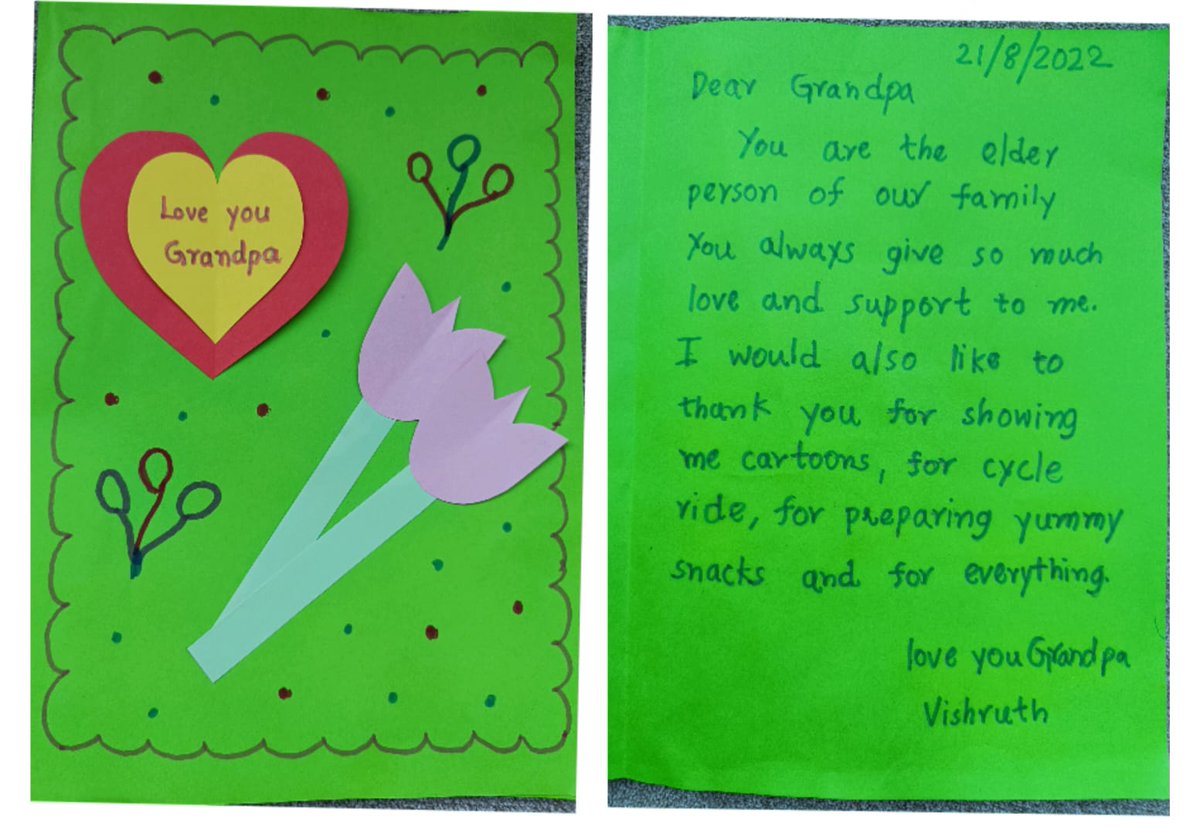 Love you
Grandpa
21/8/2022
Dear Grandpa
You are the elder
person of our family
You always give so much
love and support to me.
I would also like to
thank you for showing
me cartoons, for cycle
ride, for preparing yummy
snacks and for everything.
love you Grandpa
Vishruth